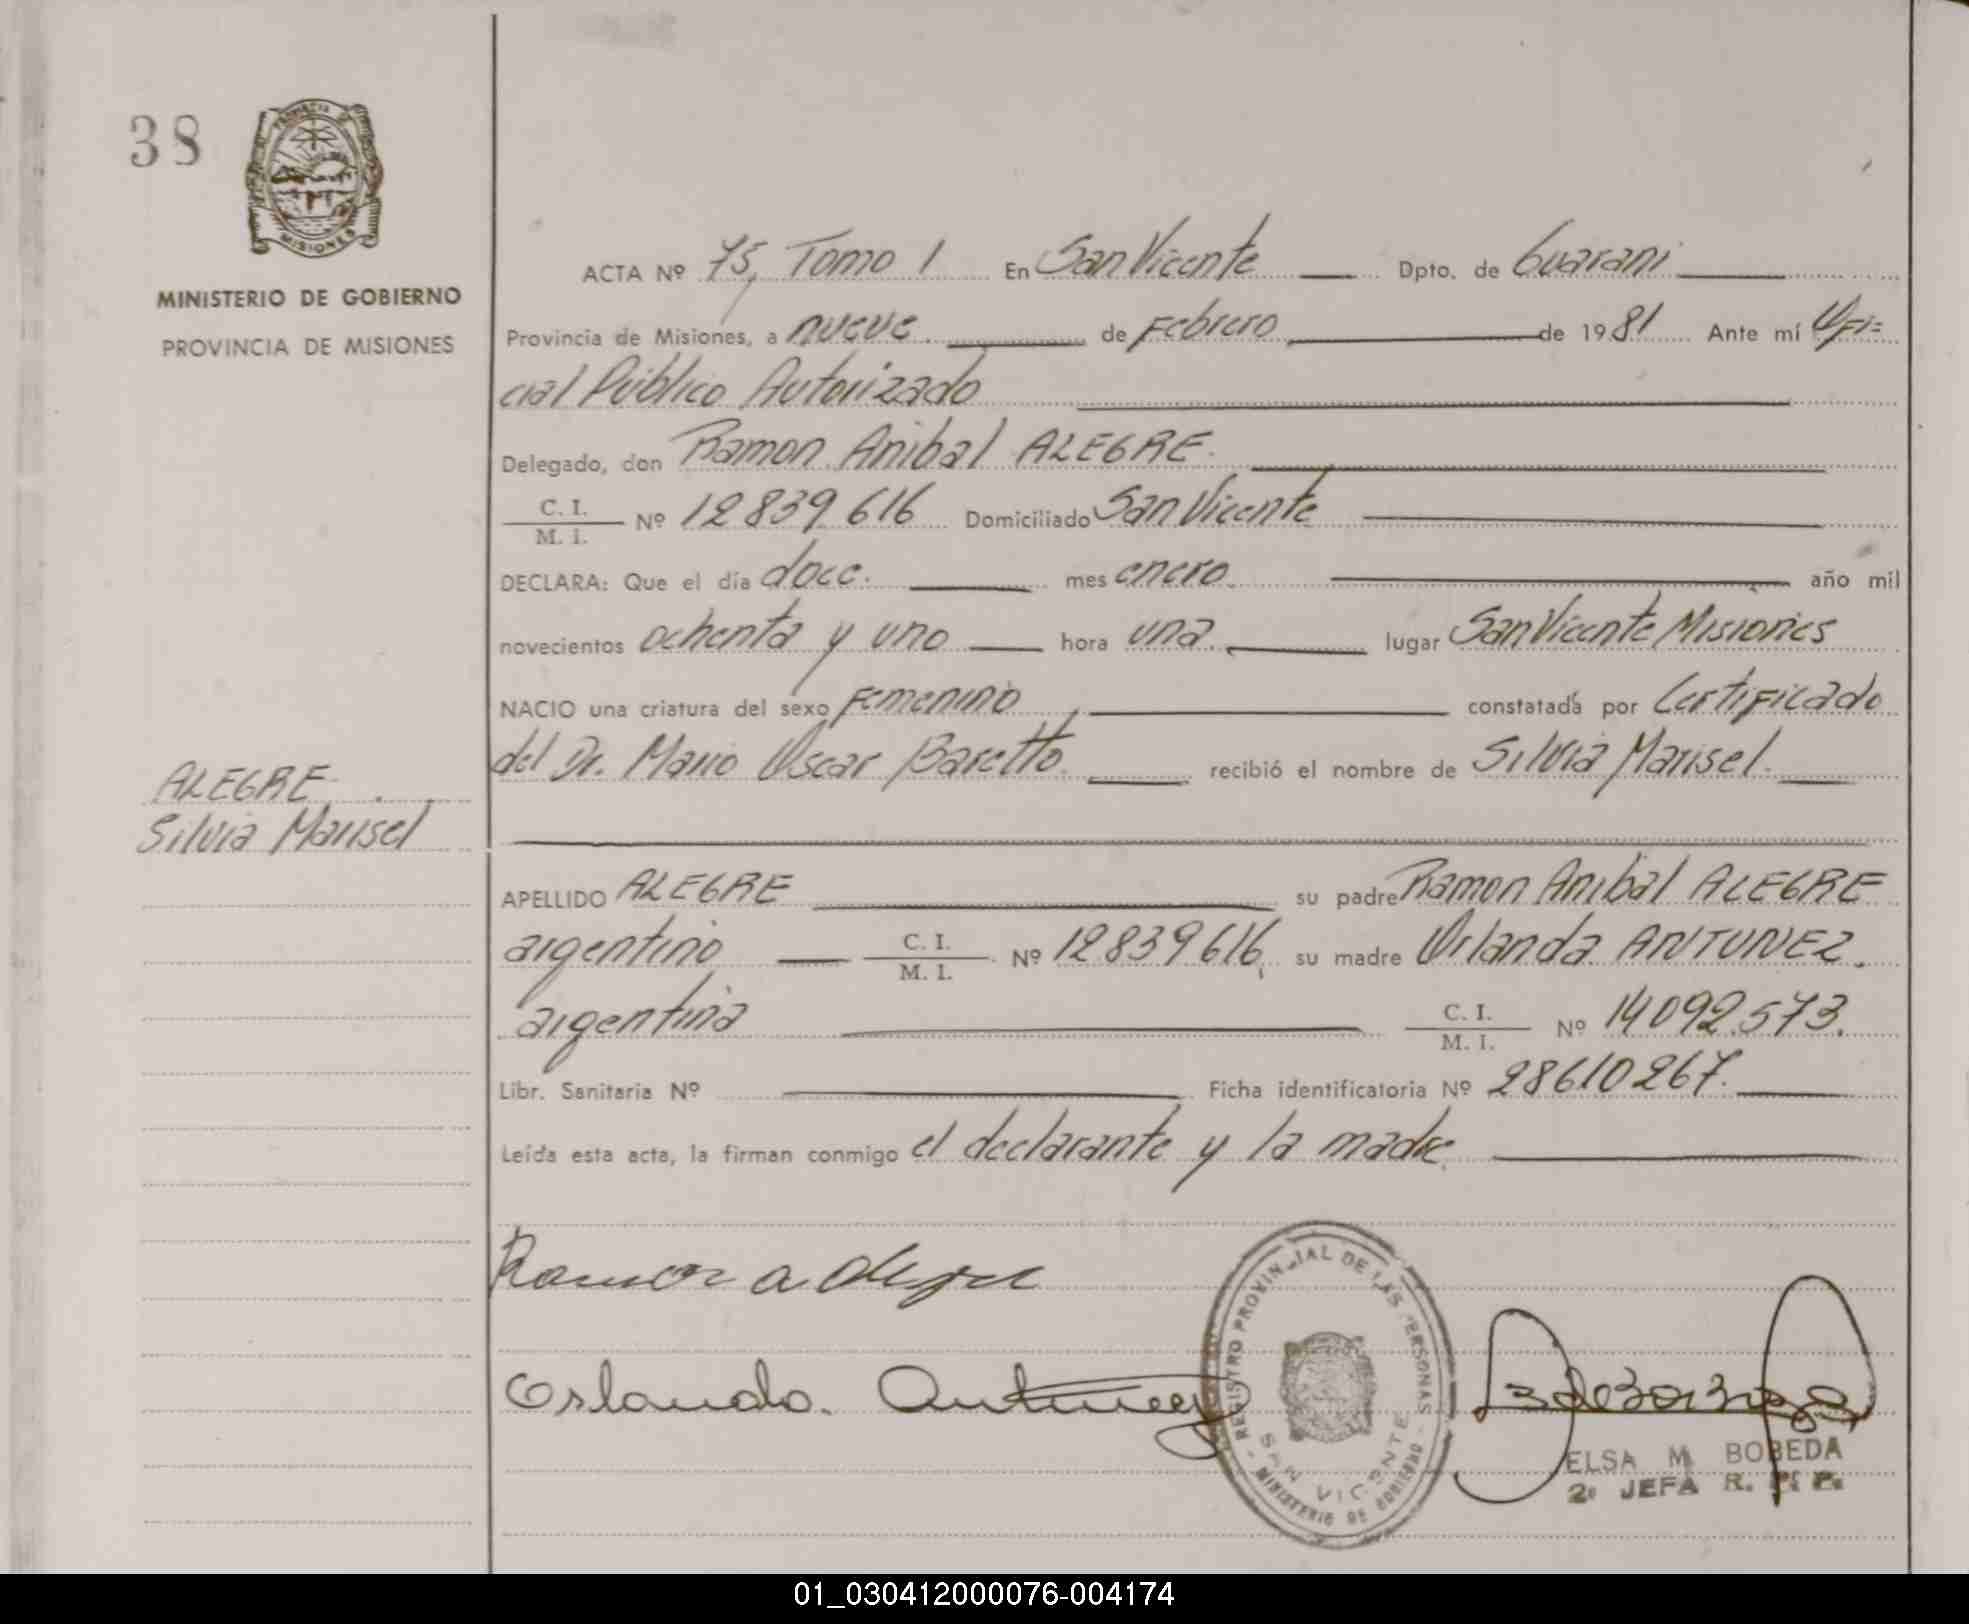 38
PROVINCIA DE
MISIONES
MINISTERIO DE GOBIERNO
PROVINCIA DE MISIONES
ACTA Nº 75, Tomo 1 En San Vicente Dpto. de Guarani
Provincia de Misiones, a nueve. de Febrero de 1981 Ante mí Ofi=
cial Público Autorizado
Delegado, don Ramon Anibal ALEGRE.
C. I.
M. I. Nº 12839.616 Domiciliado San Vicente
DECLARA: Que el día doce. mes enero. año mil
novecientos ochenta y uno hora una. lugar San Vicente Misiones
NACIO una criatura del sexo Femenino constatada por Certificado
del Dr. Mario Oscar Baretto. recibió el nombre de Silvia Marisel.
ALEGRE.
Silvia Marisel
APELLIDO ALEGRE su padre Ramon Anibal ALEGRE
argentino C. I.
M. I. Nº 12839616, su madre Orlanda ANTUNEZ.
argentina C. I.
M. I. Nº 14092.573.
Libr. Sanitaria Nº Ficha identificatoria Nº 28610267.
Leída esta acta, la firman conmigo el declarante y la madre
Ramon a alegre
Orlanda. Antunez
REGISTRO PROVINCIAL DE LAS PERSONAS
SAN VICENTE
MINISTERIO DE GOBIERNO
ELSA M. BOBEDA
2º JEFA R. P. P.
01_030412000076-004174